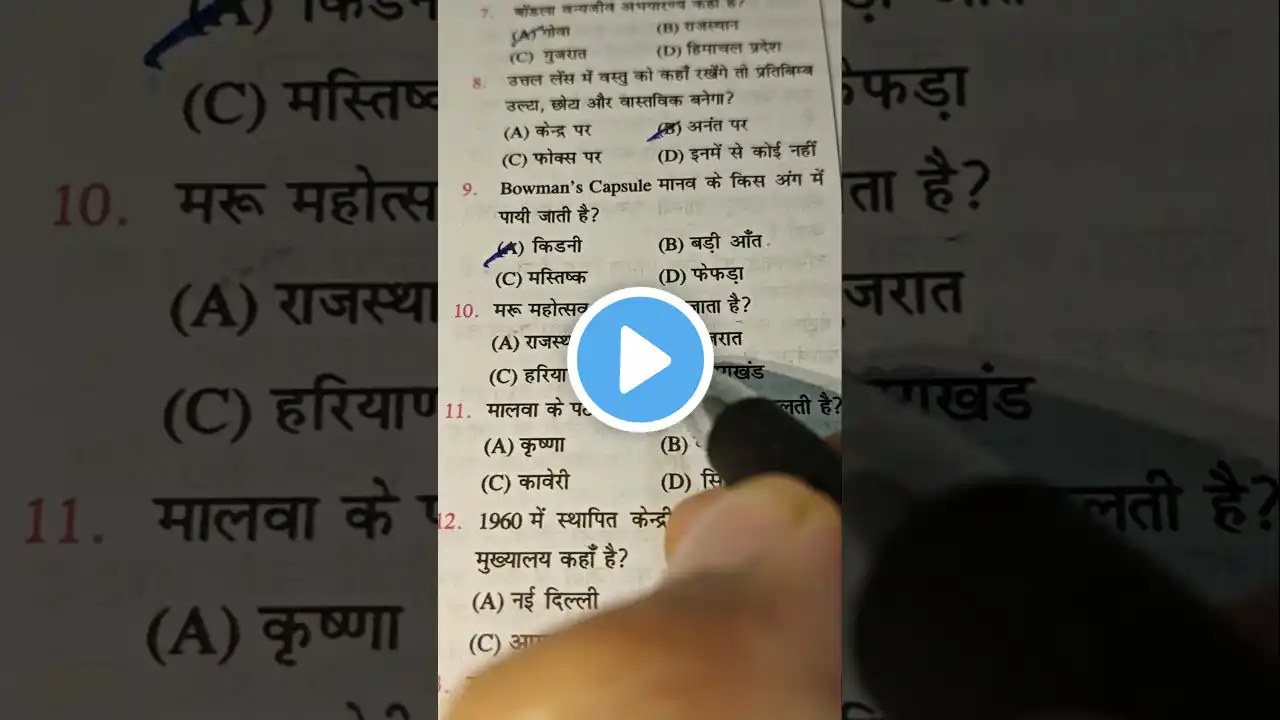 7. बोंडला वन्यजीव अभयारण्य कहाँ है?
(A) गोवा (B) राजस्थान
(C) गुजरात (D) हिमाचल प्रदेश
8. उत्तल लेंस में वस्तु को कहाँ रखेंगे तो प्रतिबिम्ब
उल्टा, छोटा और वास्तविक बनेगा?
(A) केन्द्र पर (B) अनंत पर
(C) फोक्स पर (D) इनमें से कोई नहीं
9. Bowman's Capsule मानव के किस अंग में
पायी जाती है?
(A) किडनी (B) बड़ी आँत
(C) मस्तिष्क (D) फेफड़ा
10. मरू महोत्सव जाता है?
(A)
(C)
11. मालवा के लती है?
(A) कृष्णा (B)
(C) कावेरी (D)
12. 1960 में स्थापित
मुख्यालय कहाँ है?
(A) नई दिल्ली
(C)